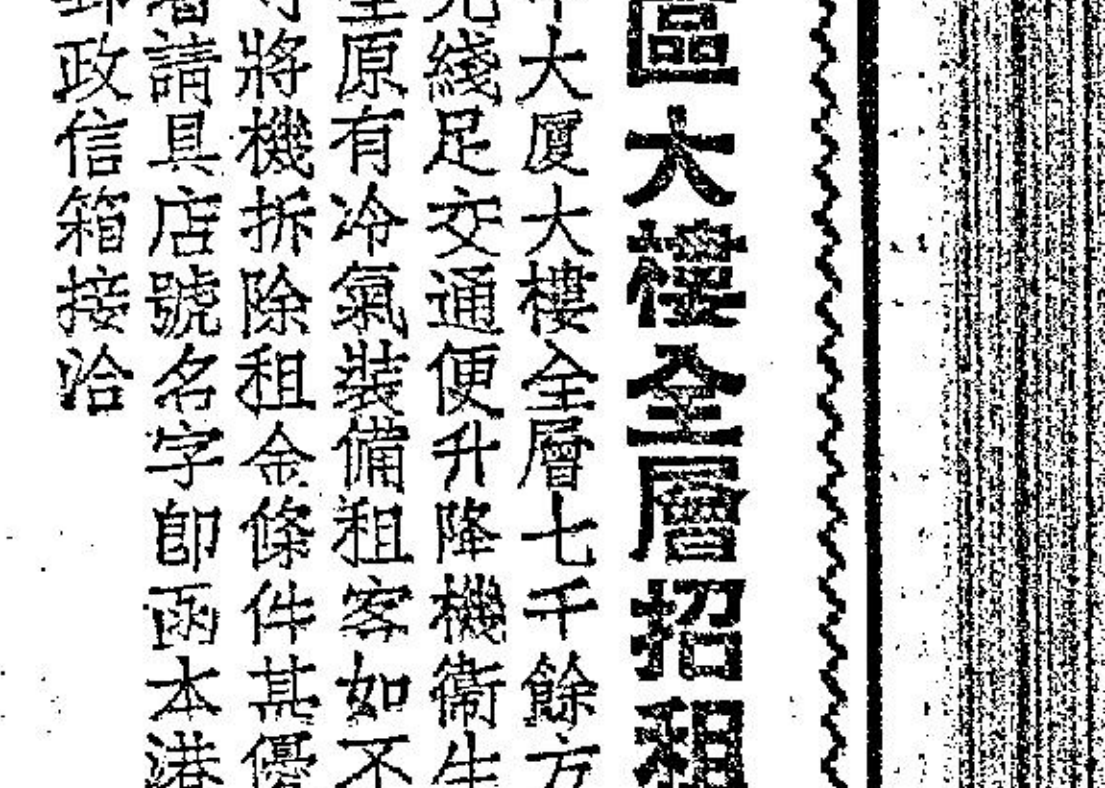 區大樓全層招租
大厦大樓全層七千餘方
光綫足交通便升降機衞生
原有冷氣裝備租客如不
將機拆除租金條件甚優
請具店號名字卽函本港
郵政信箱接洽